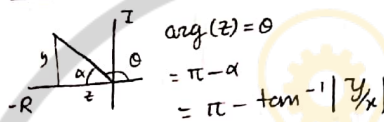 I
y
α
θ
-R
z
arg(z) = θ
= π - α
= π - tan⁻¹|y/x|